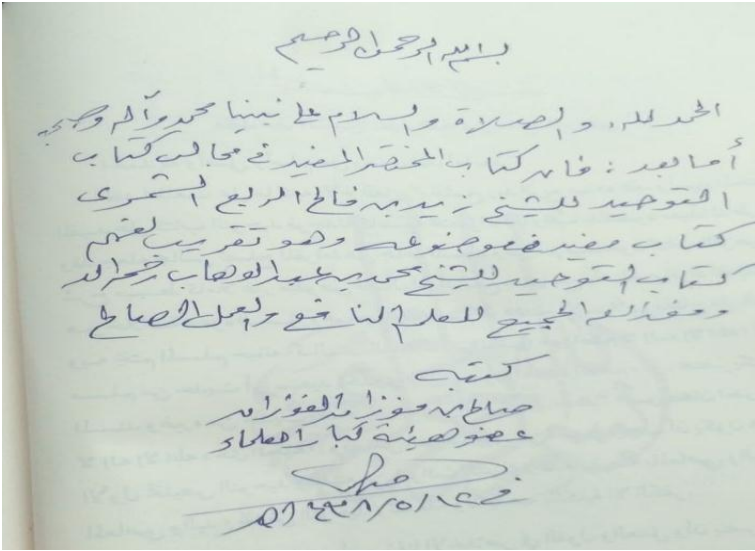 بسم الله الرحمن الرحيم
الحمد لله، والصلاة والسلام على نبينا محمد وآله وصحبه
أما بعد: فإن كتاب المختصر المفيد في مجالس كتاب
التوحيد للشيخ زيد بن فالح الربع الشمري
كتاب مفيد في موضوعه وهو تقريب لفهم
كتاب التوحيد للشيخ محمد بن عبد الوهاب رحمه الله
وفق الله الجميع للعلم النافع والعمل الصالح
كتبه
صالح بن فوزان الفوزان
عضو هيئة كبار العلماء
في ١٢/٥/١٤٣٨هـ